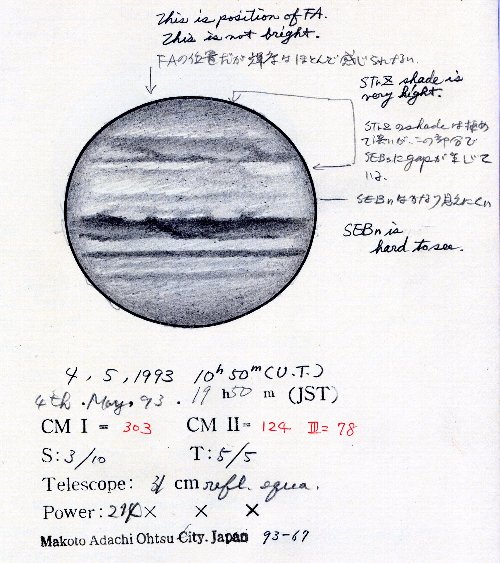 This is position of FA.
This is not bright.
FAの位置だが輝度はほとんど感じられない
STrZ shade is
very light.
STrZのshadeは極め
て淡いが、この部分で
SEBnにgapが生じて
いる。
SEBnはかなり見えにくい
SEBn is
hard to see.
4, 5, 1993 10h 50m (U.T.)
4th. May. 93. 19 h50 m (JST)
CM I = 303 CM II= 124 III= 78
S: 3/10 T: 5/5
Telescope: 31 cm refl. equa.
Power: × × ×
Makoto Adachi Ohtsu City. Japan 93-67